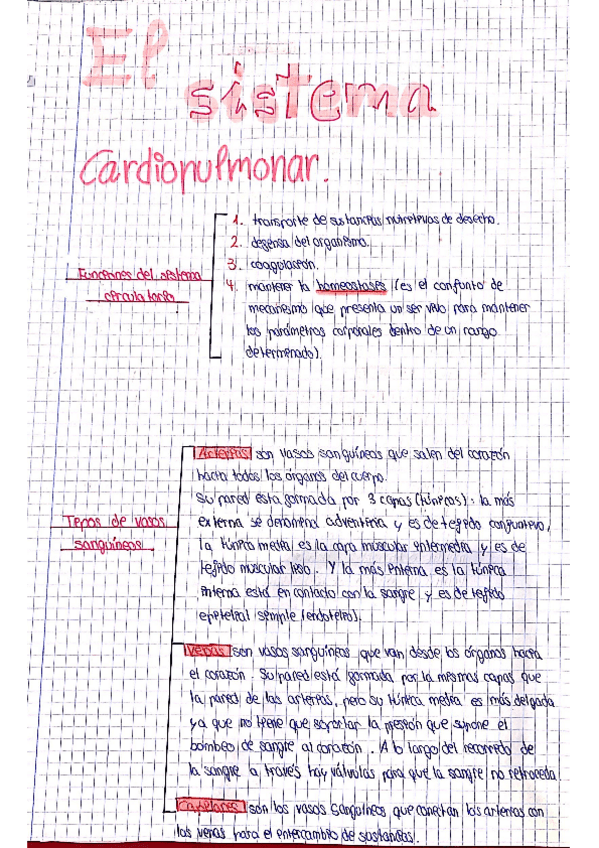 El
sistema
Cardiopulmonar.
Funciones del sistema
circulatorio
1. transporte de sustancias nutritivas de desecho.
2. defensa del organismo.
3. coagulación.
4. mantener la homeostasis (es el conjunto de
mecanismo que presenta un ser vivo para mantener
los parámetros corporales dentro de un rango
determinado).
Tipos de vasos
sanguíneos
Arterias son vasos sanguíneos que salen del corazón
hacia todos los órganos del cuerpo.
Su pared está formada por 3 capas (túnicas): la más
externa se denomina adventicia y es de tejido conjuntivo,
la túnica media es la capa muscular intermedia y es de
tejido muscular liso. Y la más interna es la túnica
interna está en contacto con la sangre y es de tejido
epitelial simple (endotelio).
Venas son vasos sanguíneos que van desde los órganos hacia
el corazón. Su pared está formada por la mismas capas que
la pared de las arterias, pero su túnica media es más delgada
ya que no tiene que soportar la presión que supone el
bombeo de sangre al corazón. A lo largo del recorrido de
la sangre a través hay válvulas para que la sangre no retroceda.
Capilares son los vasos sanguíneos que conectan las arterias con
las venas para el intercambio de sustancias.